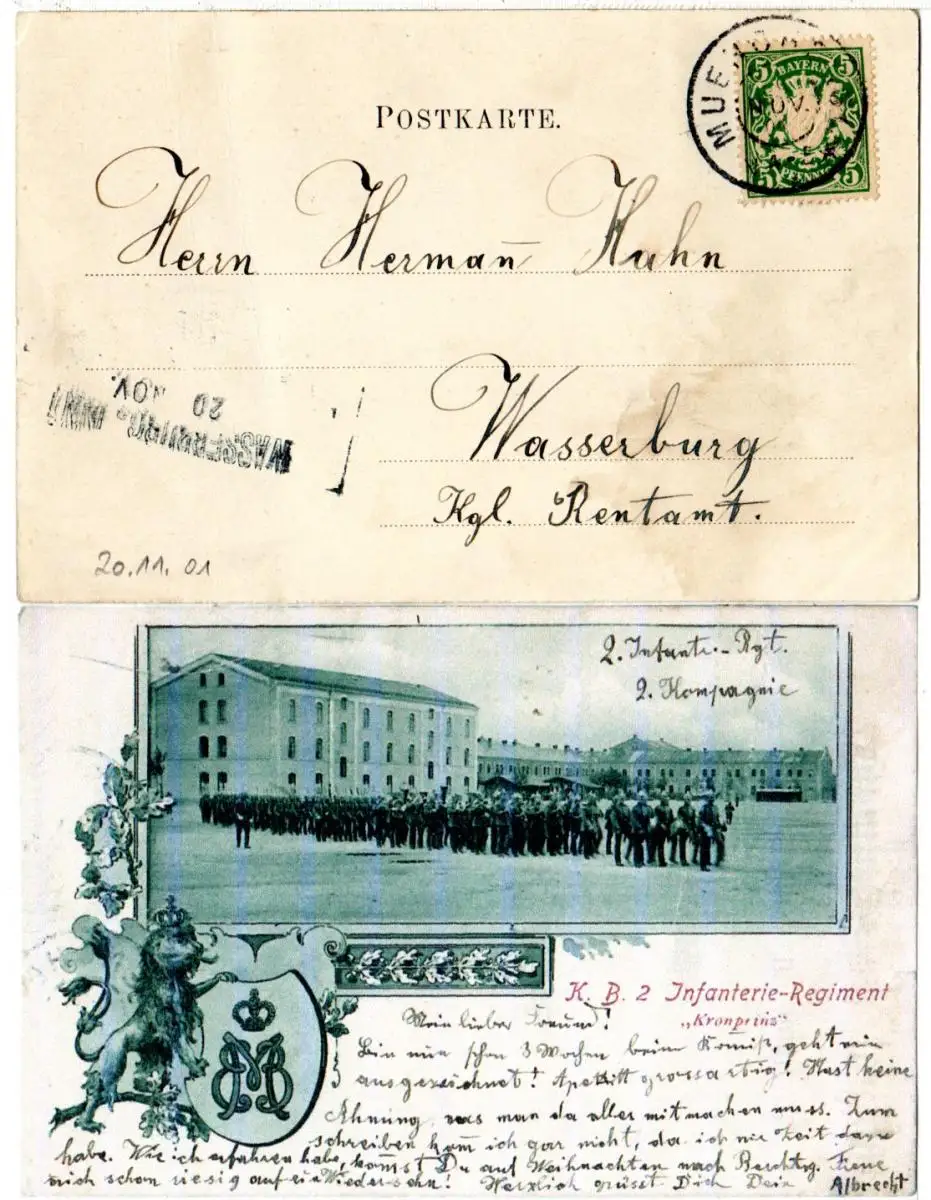 POSTKARTE.
MUENCHEN
NOV.
5 BAYERN 5
5 PFENNIG 5
Herrn Herman̄ Hahn
Wasserburg
Kgl. Rentamt.
WASSERBURG
20 NOV.
20.11.01
2. Infante.-Rgt.
2. Kompagnie
K. B. 2 Infanterie-Regiment
„Kronprinz"
Mein lieber Freund!
Bin nun schon 3 Wochen beim Komiß, geht mir
ausgezeichnet! Apetitt grossartig! Hast keine
Ahnung, was man da alles mitmachen muss. Zum
schreiben kom̄ ich gar nicht, da ich nie Zeit dazu
habe. Wie ich erfahren habe, kom̄st Du auf Weihnachten nach Berchtg. Freue
mich schon riesig auf ein Wiedersehn! Herzlich grüsst Dich Dein Albrecht